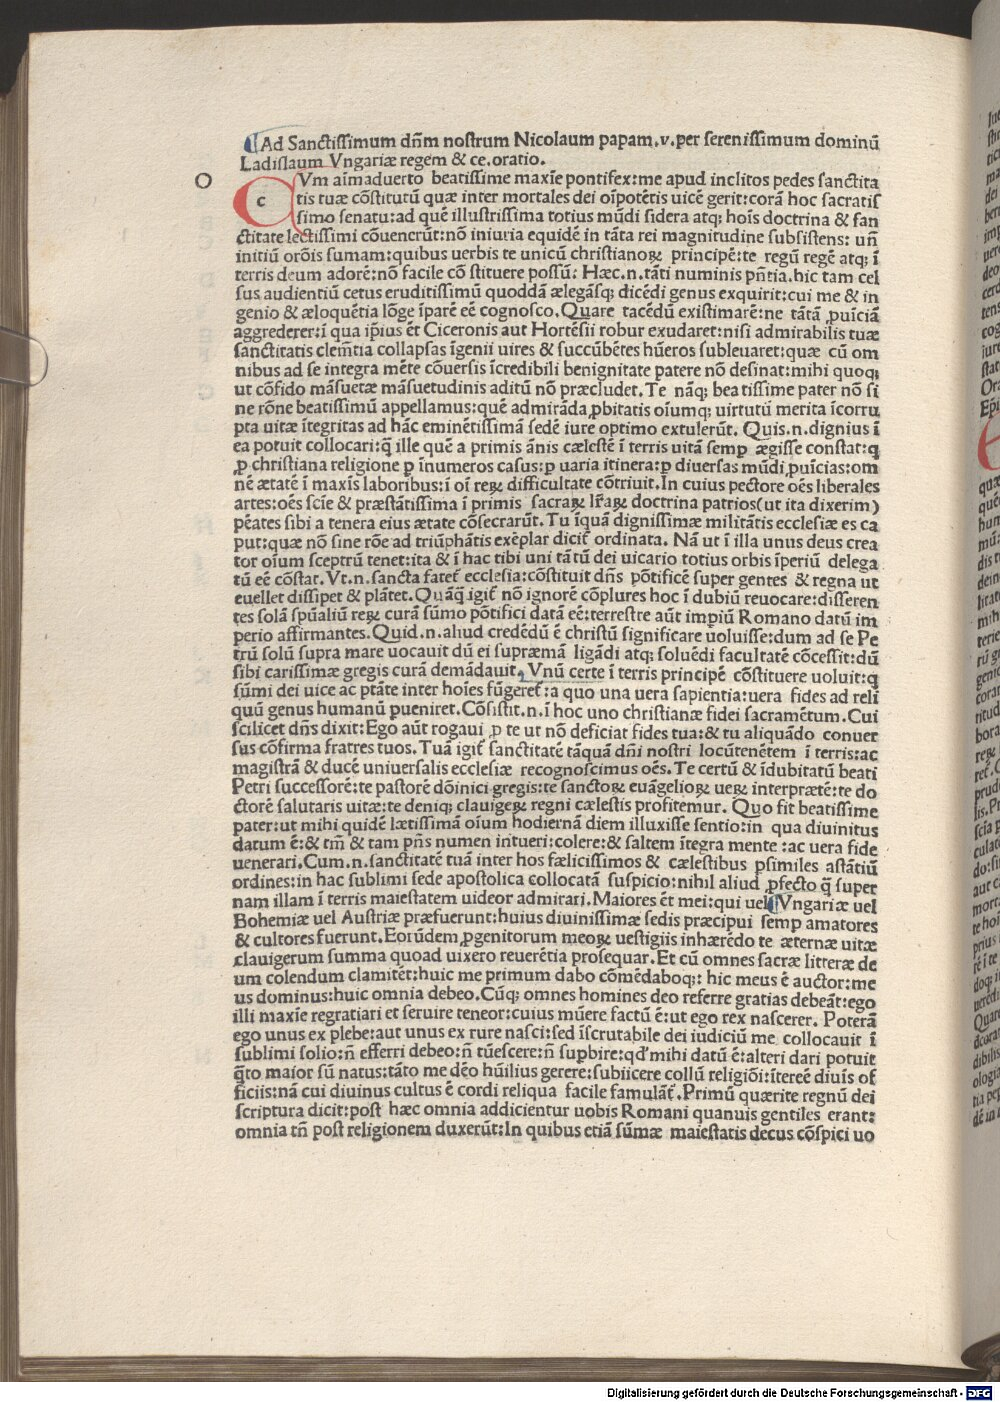 Ad Sanctissimum dñm nostrum Nicolaum papam.v.per serenissimum dominũ
Ladislaum Vngariæ regem & ce.oratio.
O
c
Vm aĩmaduerto beatissime maxĩe pontifex:me apud inclitos pedes sanctita
tis tuæ cõstitutũ quæ inter mortales dei oĩpotẽtis uicẽ gerit:corã hoc sacratis
simo senatu:ad quẽ illustrissima totius mũdi sidera atq; hoĩs doctrina & san
ctitate lectissimi cõuenerũt:nõ iniuria equidẽ in tãta rei magnitudine subsistens: uñ
initiũ orõis sumam:quibus uerbis te unicũ christianoꝝ principẽ:te regũ regẽ atq; ĩ
terris deum adorẽ:nõ facile cõ stituere possũ: Hæc.n.tãti numinis pñtia.hic tam cel
sus audientiũ cetus eruditissimũ quoddã ælegãsq; dicẽdi genus exquirit:cui me & in
genio & æloquẽtia lõge ĩparẽ eẽ cognosco.Quare tacẽdũ existimarẽ:ne tãtã ꝓuĩciã
aggrederer:ĩ qua ip̃ius ẽt Ciceronis aut Hortẽsii robur exudaret:nisi admirabilis tuæ
sanctitatis clem̃tia collapsas ĩgenii uires & succũbẽtes hũeros subleuaret:quæ cũ om
nibus ad se integra mẽte cõuersis ĩcredibili benignitate patere nõ desinat:mihi quoq;
ut cõfido mãsuetæ mãsuetudinis aditũ nõ præcludet.Te nãq; beatissime pater nõ si
ne rõne beatissimũ appellamus:quẽ admirãda ꝓbitatis oĩumq; uirtutũ merita ĩcorru
pta uitæ ĩtegritas ad hãc eminẽtissimã sedẽ iure optimo extulerũt. Quis.n.dignius ĩ
ea potuit collocari:q̃ ille quẽ a primis ãnis cælestẽ ĩ terris uitã semꝑ ægisse constat:q
ꝓ christiana religione ꝑ ĩnumeros casus:ꝑ uaria itinera:ꝑ diuersas mũdi ꝓuĩcias:om
nẽ ætatẽ ĩ maxĩs laboribus:ĩ oĩ reꝝ difficultate cõtriuit.In cuius pectore oẽs liberales
artes:oẽs scĩe & præstãtissima ĩ primis sacraꝝ lr̃aꝝ doctrina patrios(ut ita dixerim)
pẽates sibi a tenera eius ætate cõsecrarũt. Tu ĩquã dignissimæ militãtis ecclesiæ es ca
put:quæ nõ sine rõe ad triũphãtis exẽplar dicit̃ ordinata. Nã ut ĩ illa unus deus crea
tor oĩum sceptrũ tenet:ita & ĩ hac tibi uni tãtũ dei uicario totius orbis ĩperiũ delega
tũ eẽ cõstat. Vt.n.sancta fatet̃ ecclesia:cõstituit dñs põtificẽ super gentes & regna ut
euellet dissipet & plãtet.Quãq̃ igit̃ nõ ignorẽ cõplures hoc ĩ dubiũ reuocare:differen
tes solã sp̃ualiũ reꝝ curã sũmo põtifici datã eẽ:terrestre aũt impiũ Romano datũ im
perio affirmantes.Quid.n.aliud credẽdũ ẽ christũ significare uoluisse:dum ad se Pe
trũ solũ supra mare uocauit dũ ei supræmã ligãdi atq; soluẽdi facultatẽ cõcessit:dũ
sibi carissimæ gregis curã demãdauit. Vnũ certe ĩ terris principẽ cõstituere uoluit:q
sũmi dei uice ac ptãte inter hoĩes fũgeret̃:a quo una uera sapientia:uera fides ad reli
quũ genus humanũ pueniret. Cõsistit.n.ĩ hoc uno christianæ fidei sacramẽtum. Cui
scilicet dñs dixit:Ego aũt rogaui ꝓ te ut nõ deficiat fides tua:& tu aliquãdo conuer
sus cõfirma fratres tuos. Tuã igit̃ sanctitatẽ tãquã dñi nostri locũtenẽtem ĩ terris:ac
magistrã & ducẽ uniuersalis ecclesiæ recognoscimus oẽs. Te certũ & ĩdubitatũ beati
Petri successorẽ:te pastorẽ dõinici gregis:te sanctoꝝ euãgelioꝝ ueꝝ interpræte͂:te do
ctorẽ salutaris uitæ:te deniq; clauigeꝝ regni cælestis profitemur. Quo fit beatissime
pater:ut mihi quidẽ lætissimã oĩum hodiernã diem illuxisse sentio:in qua diuinitus
datum ẽ:& tm̃ & tam pñs numen intueri:colere:& saltem ĩtegra mente :ac uera fide
uenerari.Cum.n.sanctitatẽ tuã inter hos fælicissimos & cælestibus psimiles astãtiũ
ordines:in hac sublimi sede apostolica collocatã suspicio:nihil aliud ꝓfecto q̃ super
nam illam ĩ terris maiestatem uideor admirari. Maiores ẽt mei:qui uel Vngariæ uel
Bohemiæ uel Austriæ præfuerunt:huius diuinissimæ sedis præcipui semꝑ amatores
& cultores fuerunt.Eorũdem ꝓgenitorum meoꝝ uestigiis inhærẽdo te æternæ uitæ
clauigerum summa quoad uixero reuerẽtia prosequar. Et cũ omnes sacræ litteræ de
um colendum clamitẽt:huic me primum dabo cõmẽdaboq;: hic meus ẽ auctor:me
us dominus:huic omnia debeo. Cũq; omnes homines deo referre gratias debeãt:ego
illi maxĩe regratiari et seruire teneor:cuius mũere factũ ẽ:ut ego rex nascerer. Poterã
ego unus ex plebe:aut unus ex rure nasci:sed ĩscrutabile dei iudiciũ me collocauit ĩ
sublimi solio:ñ efferri debeo:ñ tũescere:ñ supbire:qd̃ mihi datũ ẽ:alteri dari potuit
q̃to maior sũ natus:tãto me dẽo hũilius gerere:subiicere collũ religiõi:ĩtereẽ diuĩs of
ficiis:nã cui diuinus cultus ẽ cordi reliqua facile famulãt̃.Primũ quærite regnũ dei
scriptura dicit:post hæc omnia addicientur uobis Romani quanuis gentiles erant:
omnia tñ post religionem duxerũt:In quibus etiã sũmæ maiestatis decus cõspici uo
Digitalisierung gefördert durch die Deutsche Forschungsgemeinschaft - DFG